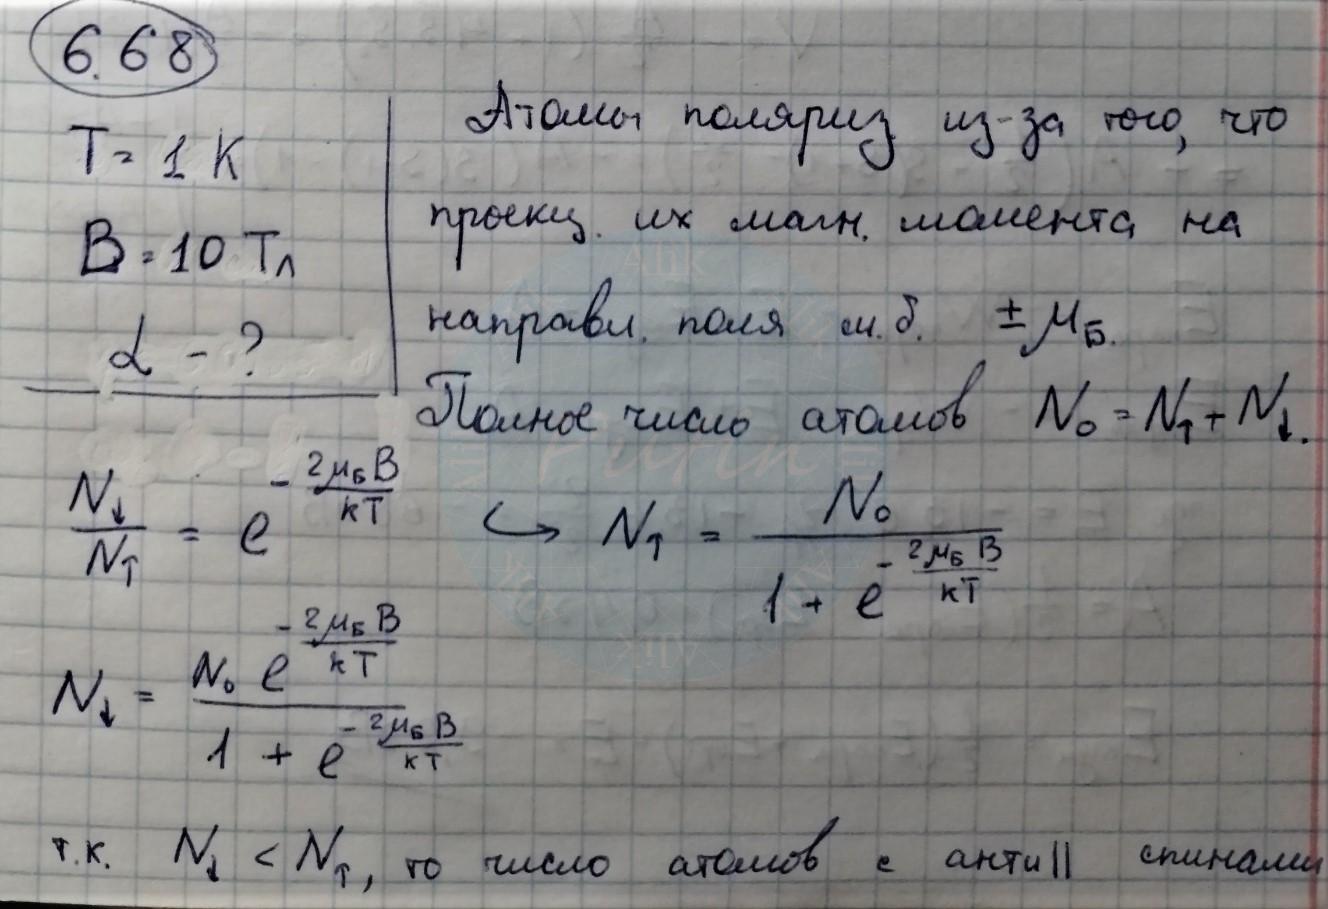 6.68
T = 1 K
B = 10 Тл
α - ?
Атомы поляриз из-за того, что
проекц. их магн. момента на
направл. поля м.б. ± μ_Б.
Полное число атомов N₀ = N↑ + N↓.
N↓/N↑ = e^(-2μ_Б B/kT) ↪ N↑ = N₀/(1 + e^(-2μ_Б B/kT))
N↓ = N₀ e^(-2μ_Б B/kT)/(1 + e^(-2μ_Б B/kT))
т.к. N↓ < N↑, то число атомов с анти|| спинами